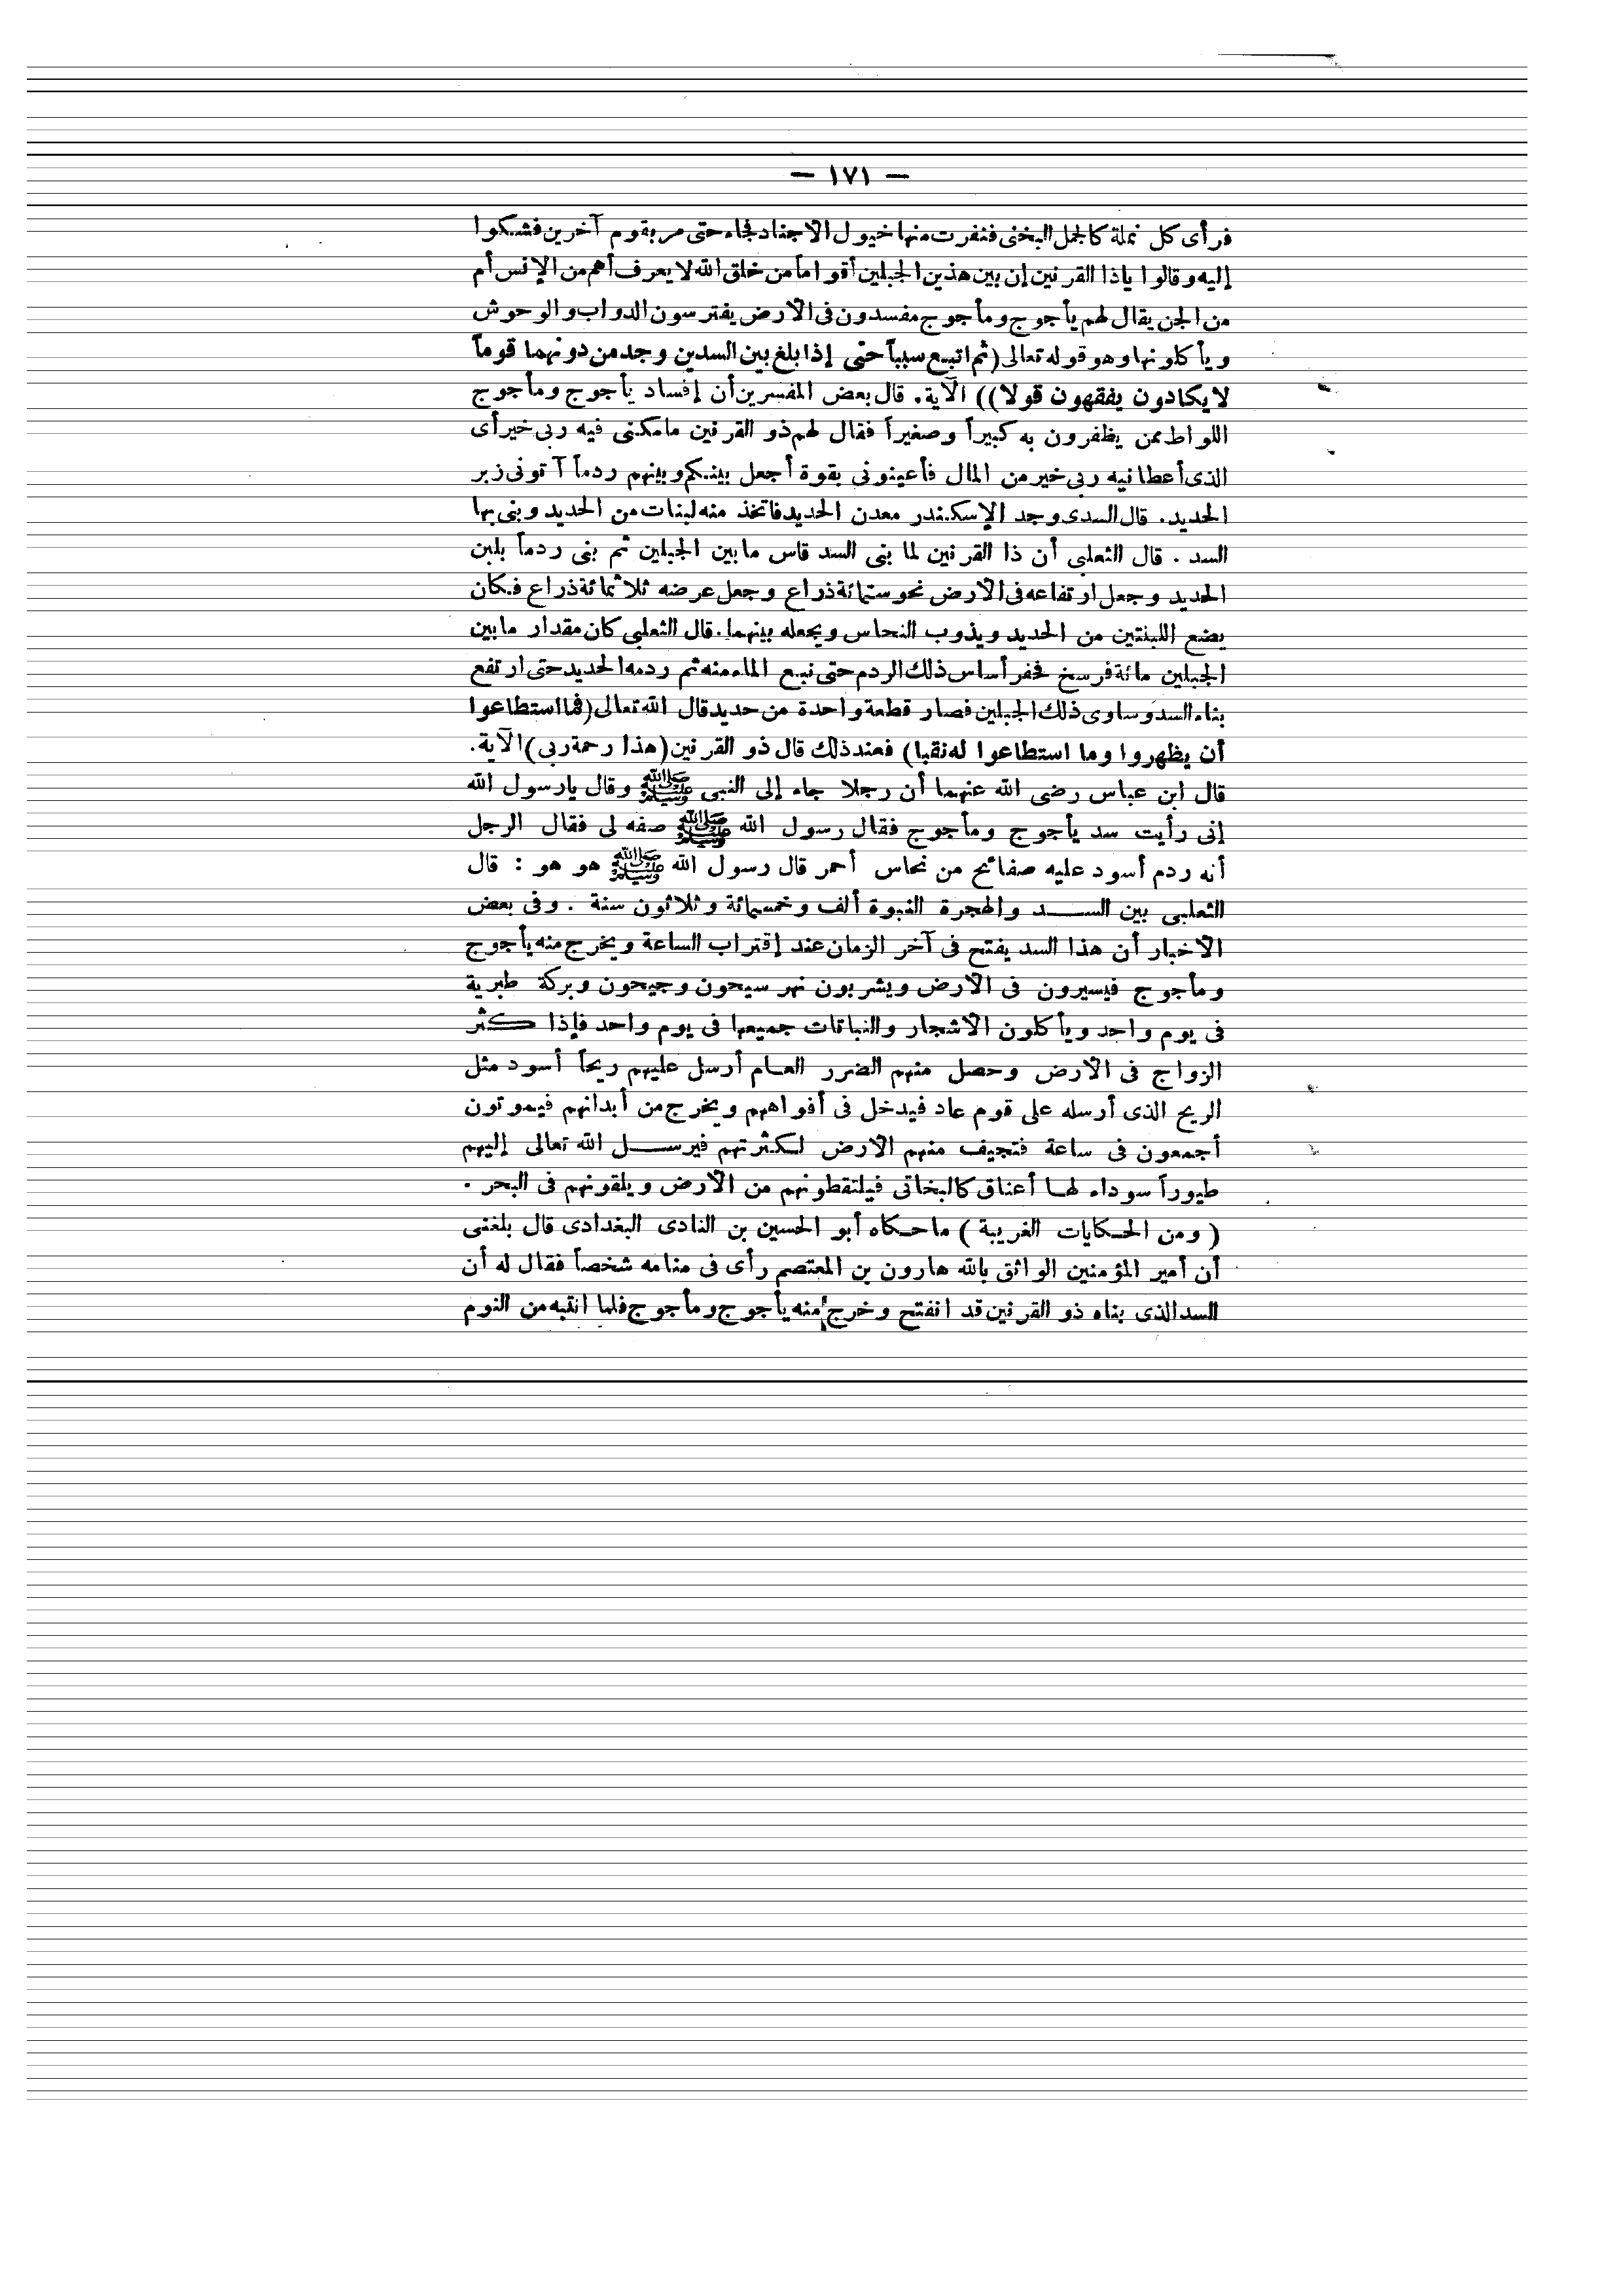 — ١٧١ —
فرأى كل نملة كالجمل البختى فنفرت منها خيول الاجناد فجاء حتى مر بقوم آخرين فشكوا
إليه وقالوا ياذا القرنين إن بين هذين الجبلين أقواماً من خلق الله لا يعرف أهم من الإنس أم
من الجن يقال لهم يأجوج ومأجوج مفسدون فى الارض يفترسون الدواب والوحوش
ويأكلونها وهو قوله تعالى (ثم اتبع سبباً حتى إذا بلغ بين السدين وجد من دونهما قوماً
لا يكادون يفقهون قولا)) الآية. قال بعض المفسرين أن إفساد يأجوج ومأجوج
اللواط ممن يظفرون به كبيراً وصغيراً فقال لهم ذو القرنين مامكنى فيه ربى خير أى
الذى أعطانيه ربى خير من المال فأعينونى بقوة أجعل بينكم وبينهم ردماً آتونى زبر
الحديد. قال السدى وجد الإسكندر معدن الحديد فاتخذ منه لبنات من الحديد وبنى بها
السد . قال الثعلبى أن ذا القرنين لما بنى السد قاس مابين الجبلين ثم بنى ردماً بلبن
الحديد وجعل ارتفاعه فى الارض نحو ستمائة ذراع وجعل عرضه ثلاثمائة ذراع فكان
يضع اللبنتين من الحديد ويذوب النحاس ويجعله بينهما. قال الثعلبى كان مقدار مابين
الجبلين مائة فرسخ فحفر أساس ذلك الردم حتى نبع الماء منه ثم ردمه الحديد حتى ارتفع
بناء السد وساوى ذلك الجبلين فصار قطعة واحدة من حديد قال الله تعالى (فما استطاعوا
أن يظهروا وما استطاعوا له نقبا) فعند ذلك قال ذو القرنين (هذا رحمة ربى) الآية.
قال ابن عباس رضى الله عنهما أن رجلا جاء إلى النبى ﷺ وقال يارسول الله
إنى رأيت سد يأجوج ومأجوج فقال رسول الله ﷺ صفه لى فقال الرجل
أنه ردم أسود عليه صفائح من نحاس أحمر قال رسول الله ﷺ هو هو : قال
الثعلبى بين الســـد والهجرة النبوة ألف وخمسمائة وثلاثون سنة . وفى بعض
الاخبار أن هذا السد يفتح فى آخر الزمان عند إقتراب الساعة ويخرج منه يأجوج
ومأجوج فيسيرون فى الارض ويشربون نهر سيحون وجيحون وبركة طبرية
فى يوم واحد ويأكلون الاشجار والنباتات جميعها فى يوم واحد فإذا كثر
الزواج فى الارض وحصل منهم الضرر العام أرسل عليهم ريحاً أسود مثل
الريح الذى أرسله على قوم عاد فيدخل فى أفواههم ويخرج من أبدانهم فيموتون
أجمعون فى ساعة فتجيف منهم الارض لكثرتهم فيرســل الله تعالى إليهم
طيوراً سوداء لها أعناق كالبخاتى فيلتقطونهم من الارض ويلقونهم فى البحر .
( ومن الحكايات الغريبة ) ماحكاه أبو الحسين بن النادى البغدادى قال بلغنى
أن أمير المؤمنين الواثق بالله هارون بن المعتصم رأى فى منامه شخصاً فقال له أن
السد الذى بناه ذو القرنين قد انفتح وخرج منه يأجوج ومأجوج فلما انتبه من النوم